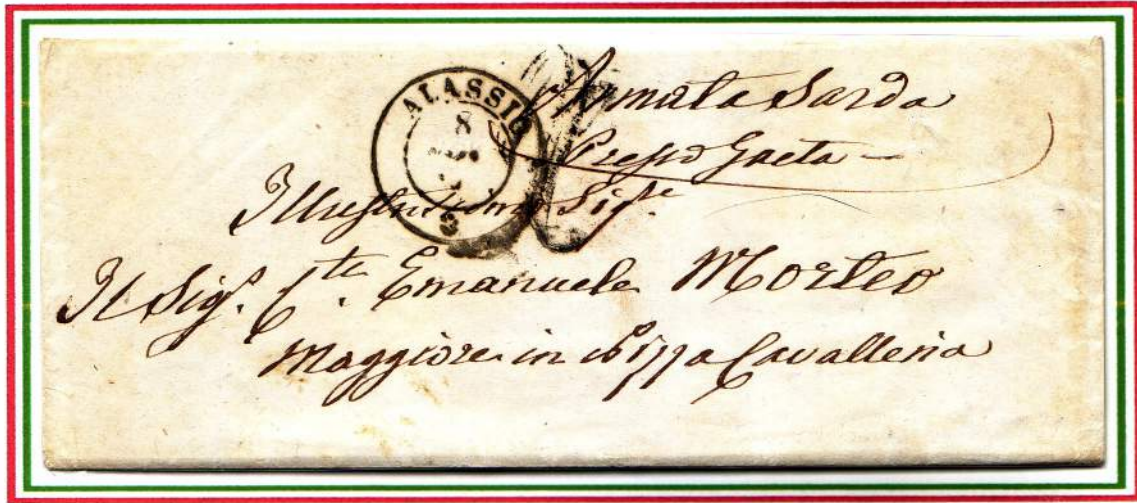 ALASSIO
8
Armata Sarda
Presso Gaeta –
Illustrissimo Sigre
Il Sigr. Cte. Emanuele Morteo
Maggiore in Cavalleria